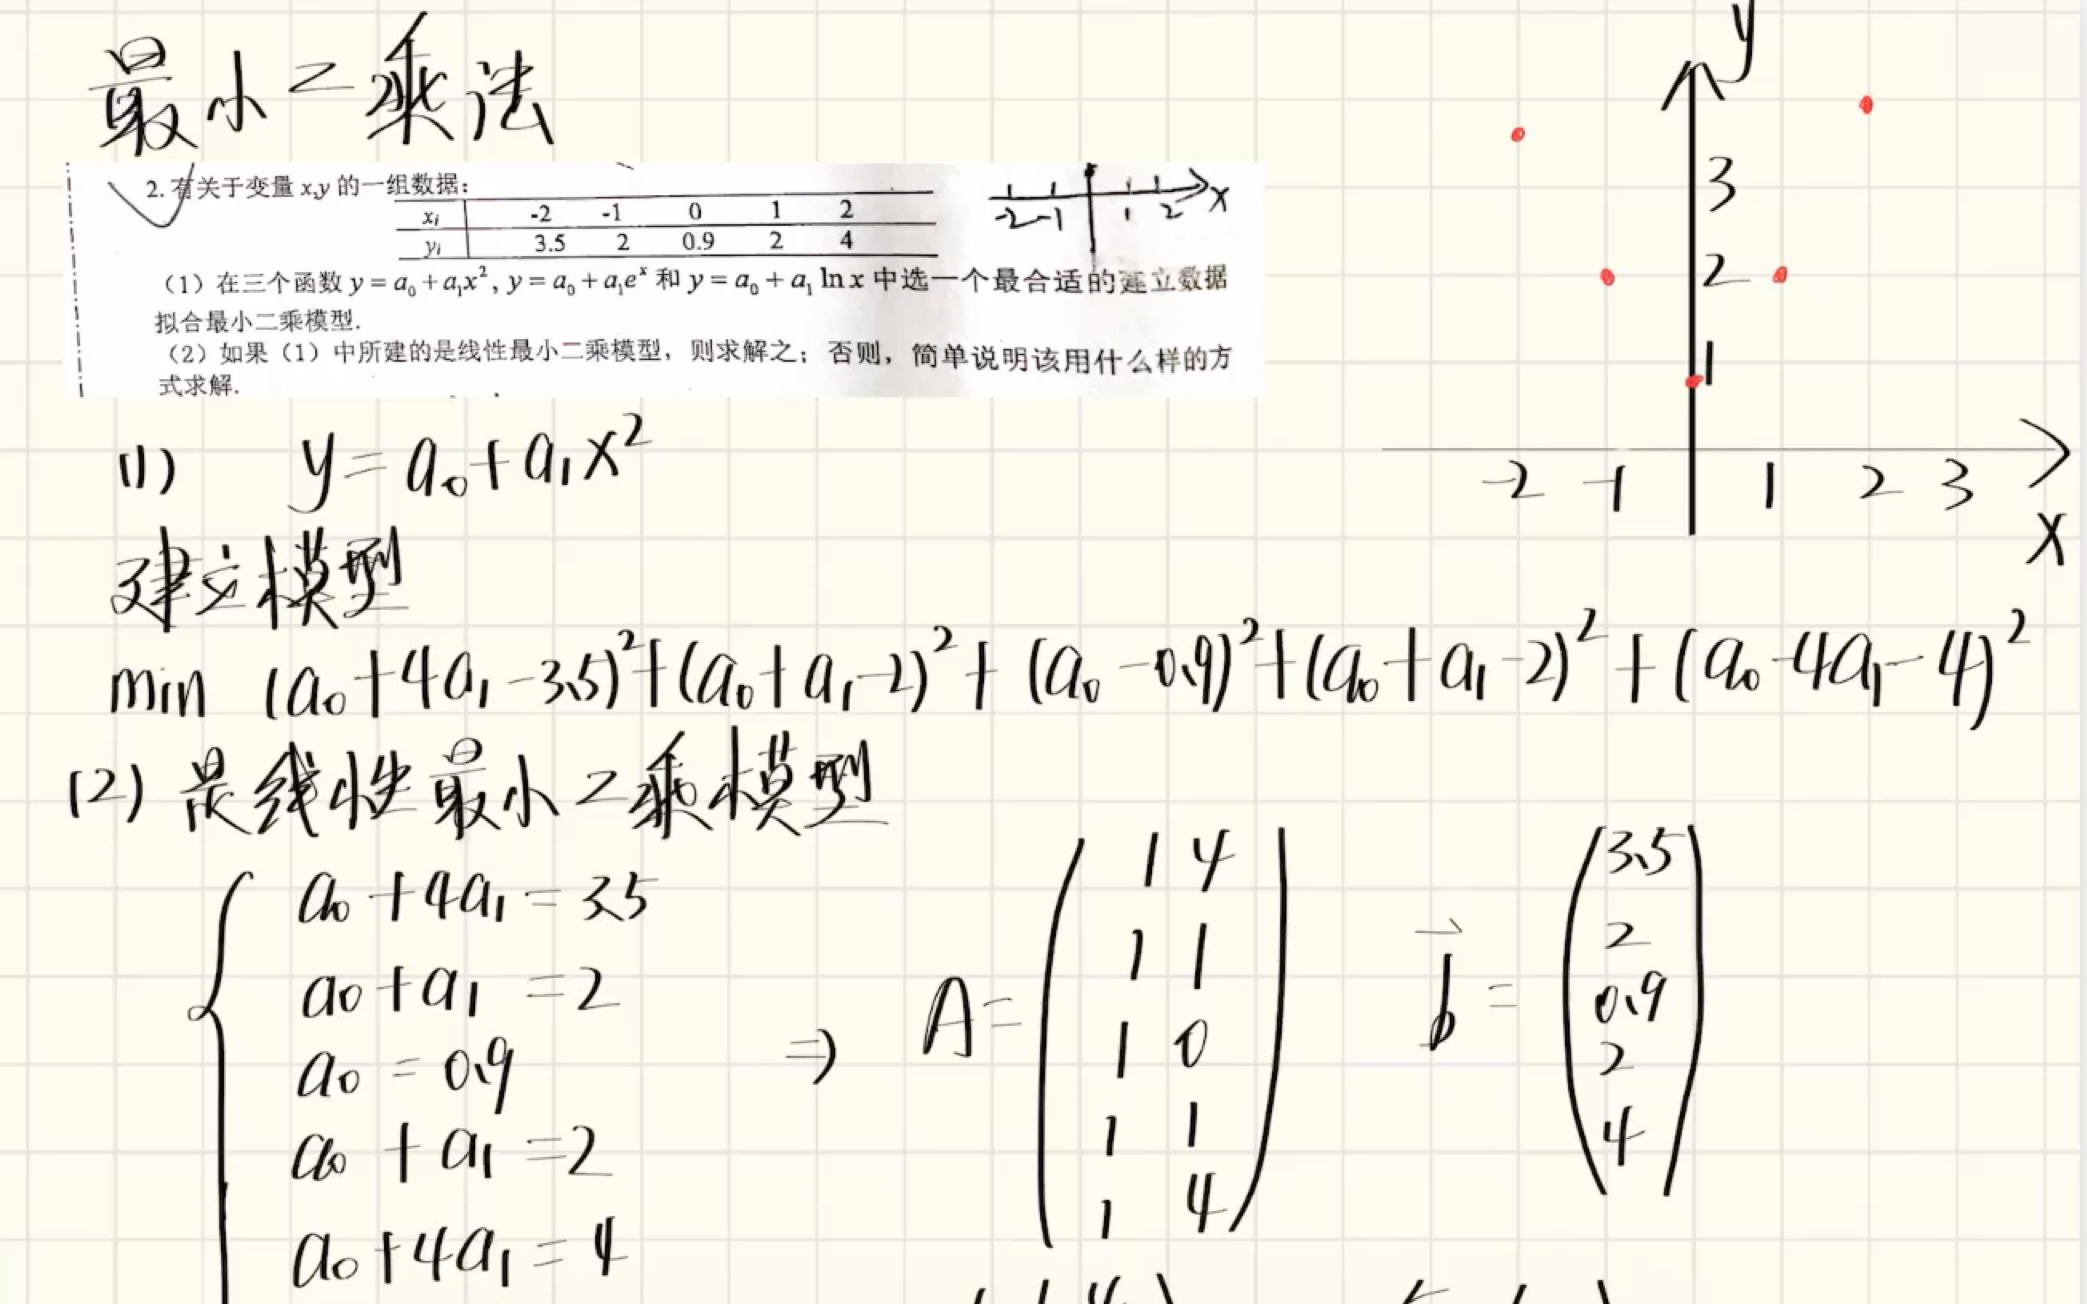 最小二乘法
2. 有关于变量 x,y 的一组数据:
xi -2 -1 0 1 2
yi 3.5 2 0.9 2 4
-2 -1 1 2 x
(1) 在三个函数 y = a₀ + a₁x², y = a₀ + a₁eˣ 和 y = a₀ + a₁ ln x 中选一个最合适的建立数据
拟合最小二乘模型.
(2) 如果 (1) 中所建的是线性最小二乘模型, 则求解之; 否则, 简单说明该用什么样的方
式求解.
y
3
2
1
-2 -1 1 2 3
x
(1) y = a₀ + a₁x²
建立模型
min (a₀+4a₁-3.5)²+(a₀+a₁-2)²+(a₀-0.9)²+(a₀+a₁-2)²+(a₀-4a₁-4)²
(2) 是线性最小二乘模型
a₀+4a₁=3.5
a₀+a₁=2
a₀=0.9
a₀+a₁=2
a₀+4a₁=4
⇒ A=
1 4
1 1
1 0
1 1
1 4
b⃗ =
3.5
2
0.9
2
4